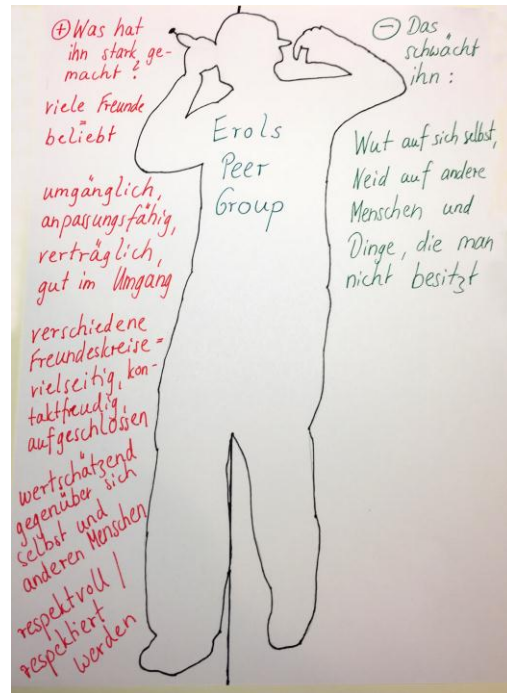 ⊕ Was hat
ihn stark ge-
macht?
viele Freunde
=
beliebt
umgänglich,
anpassungsfähig,
verträglich,
gut im Umgang
verschiedene
Freundeskreise =
vielseitig, kon-
taktfreudig,
aufgeschlossen
wertschätzend
gegenüber sich
selbst und
anderen Menschen
respektvoll /
respektiert
werden
Erols
Peer
Group
⊖ Das
schwächt
ihn:
Wut auf sich selbst,
Neid auf andere
Menschen und
Dinge, die man
nicht besitzt